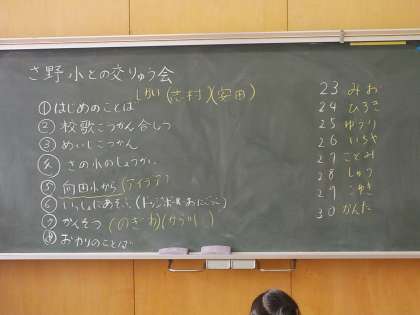 さ野小との交りゅう会
しかい(志村)(安田)
①はじめのことば
②校歌こうかん合しつ
③めいしこうかん
④さの小のしょうかい
⑤向田小から(アイデア)
⑥いっしょにあそぶ(ドッジボール おにごっこ)
⑦かんそう
⑧おわりのことば
23 みお
24 ひろき
25 ゆうり
26 いちや
27 ことみ
28 しゅう
29 こゆき
30 かんた